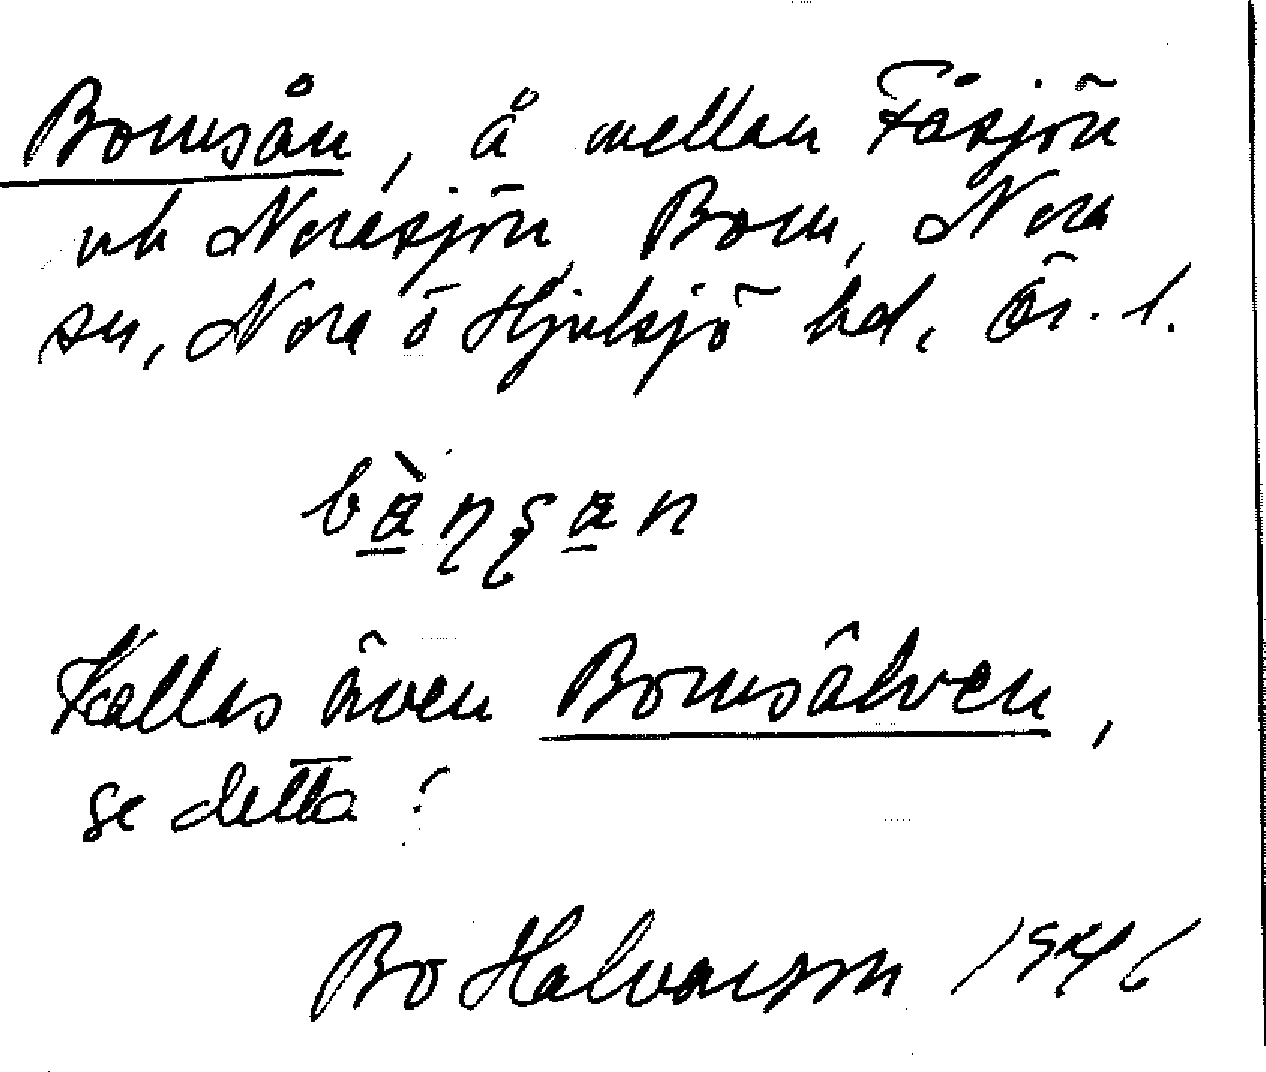 Bornsån, å mellan Fåsjön
och Norasjön, Born, Nora
sn, Nora o Hjulsjö hd, Ör. l.
Kallas även Bornsälven,
se detta!
Bo Halvarsson 1946